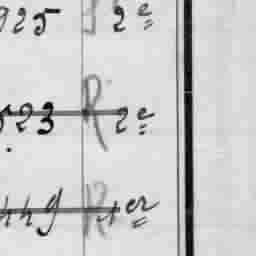 925 2e
523 R 2e
449 R 1er